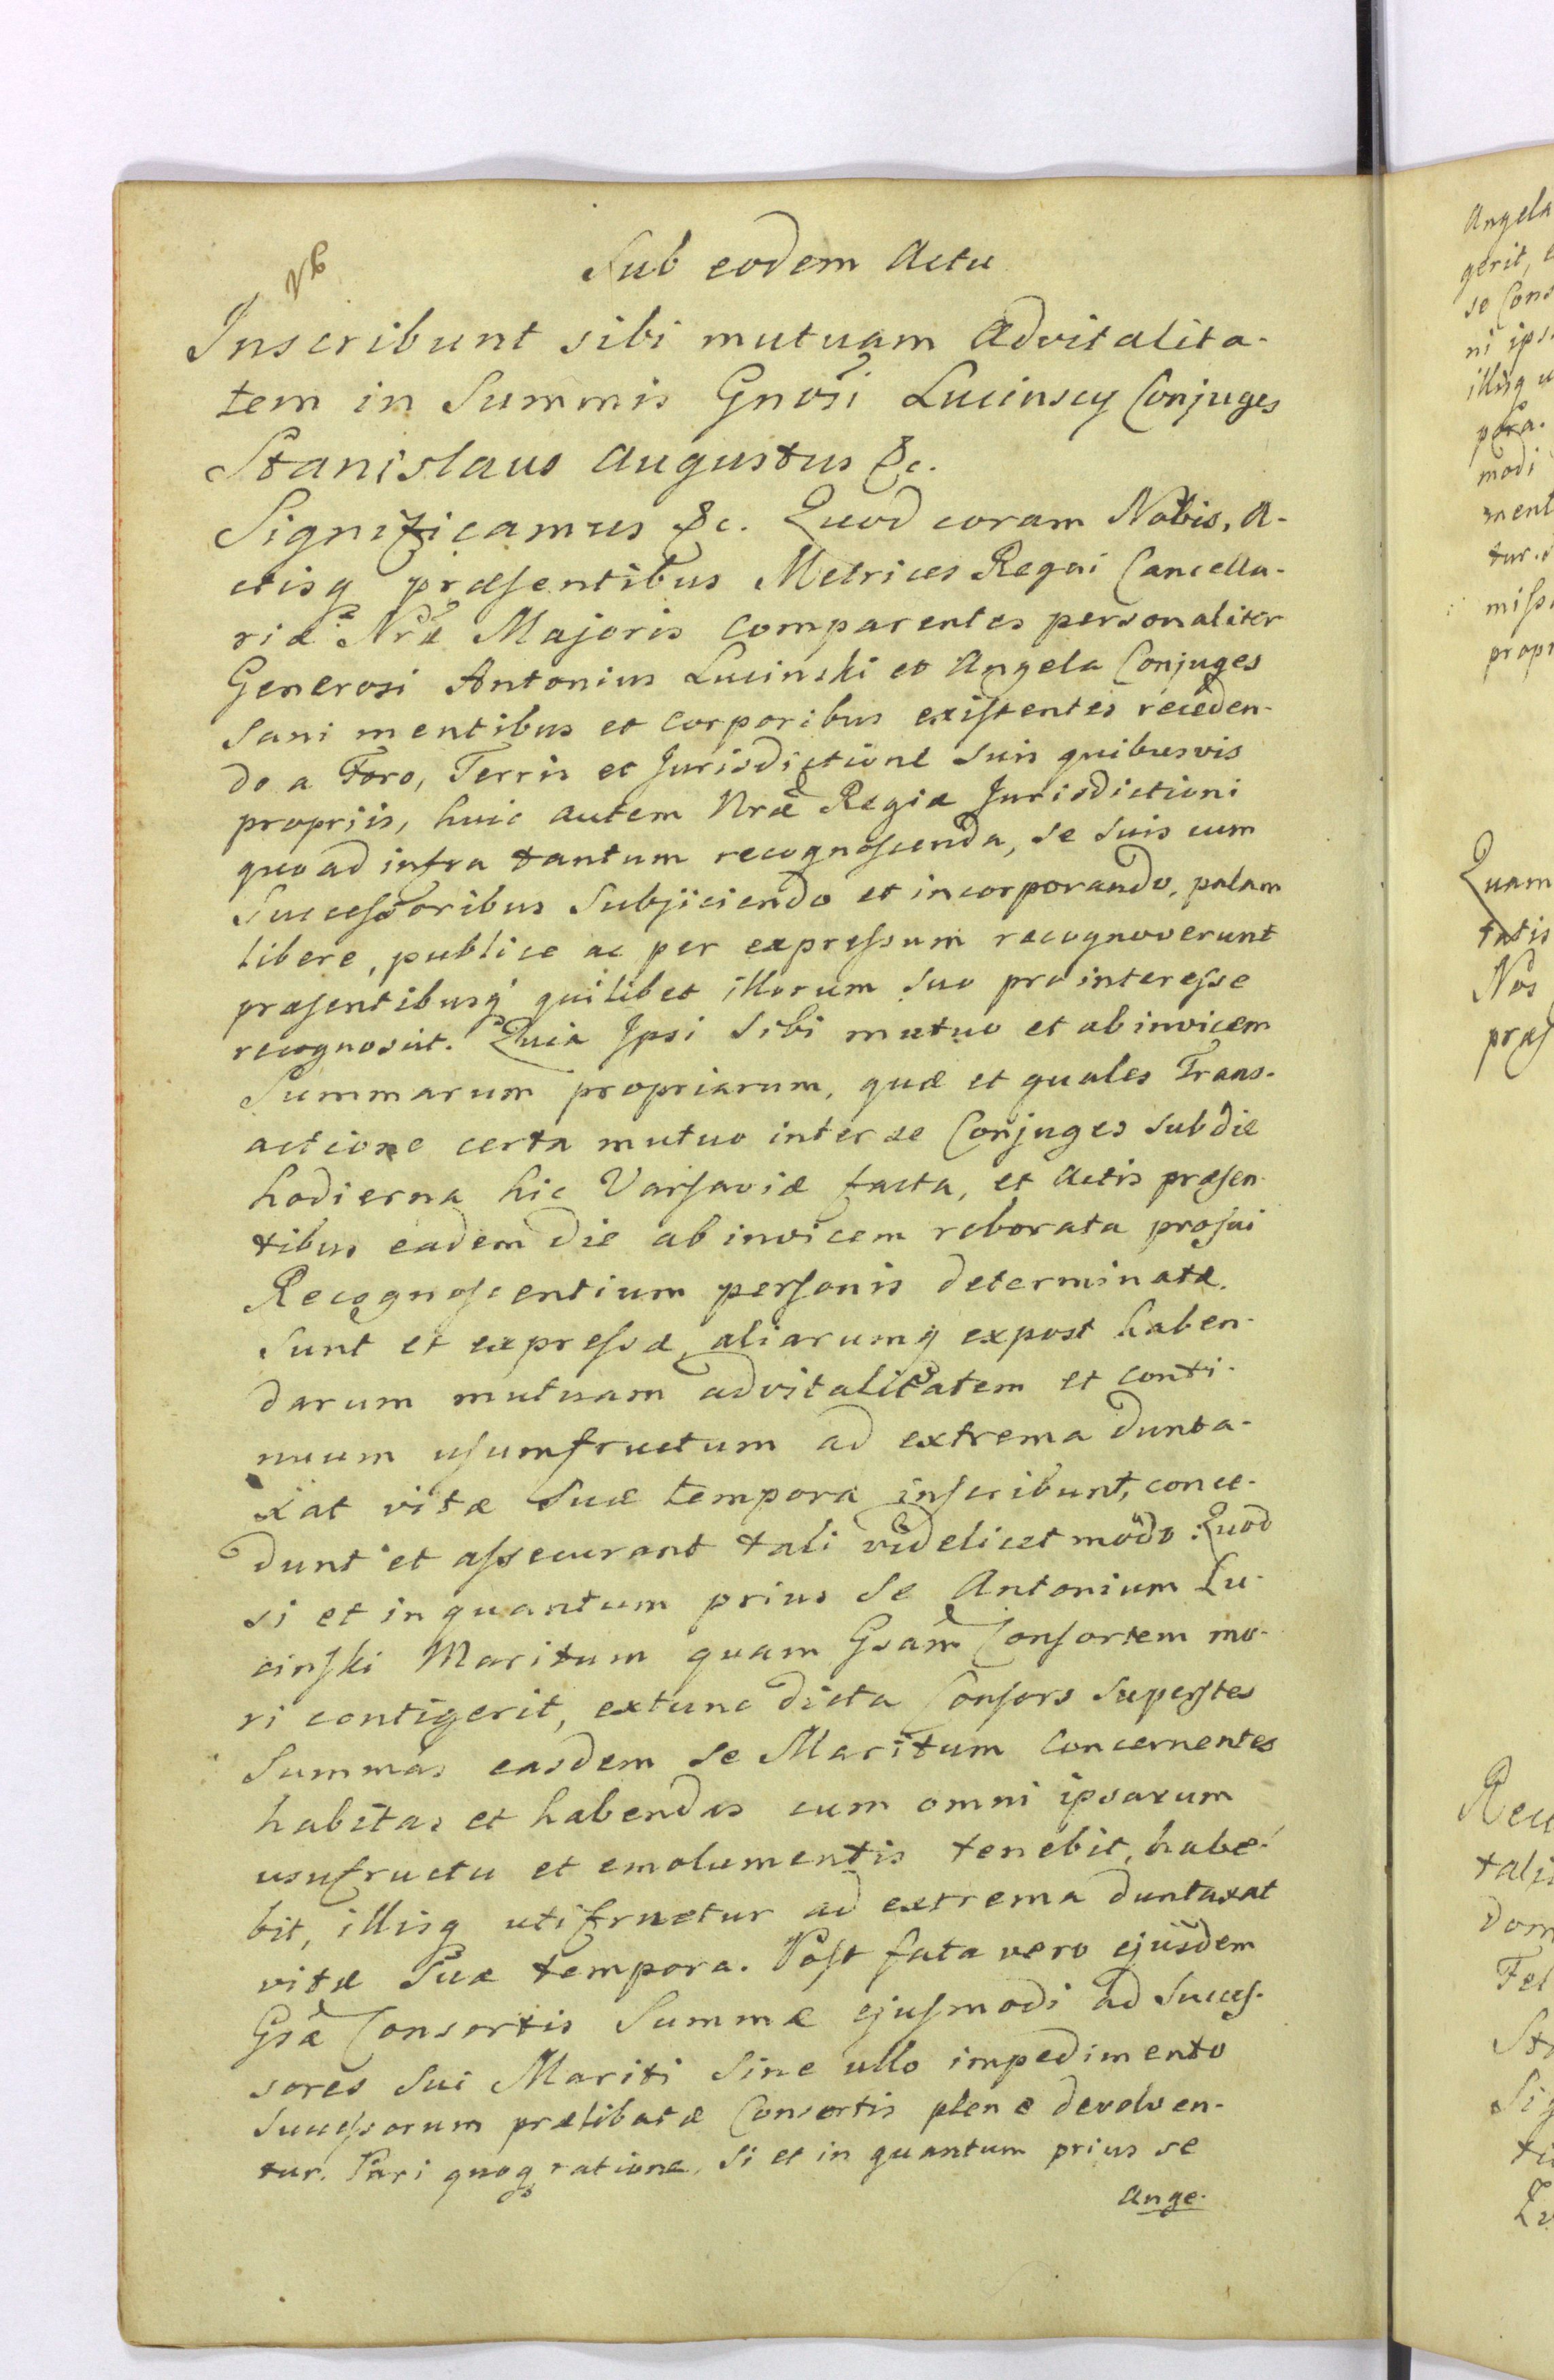 Nb
Sub eodem Actu
Inscribunt sibi mutuam Advitalita-
tem in Summis Gnosi Lucinscy Conjuges
Stanislaus Augustus &c.
Significamus &c. Quod coram Nobis, A-
ctisq præsentibus Metrices Regni Cancella-
riæ Nræ Majoris comparentes personaliter
Generosi Antonius Lucinski et Angela Conjuges
Sani mentibus et corporibus existentes receden-
do a Foro, Terris et Jurisdictione Suis quibusvis
propriis, huic autem Nræ Regiæ Jurisdictioni
quo ad infra tantum recognoscenda, se suis cum
Successoribus Subjiciendo et incorporando, palam
libere, publice ac per expressum recognoverunt
præsentibusq quilibet illorum Suo pro interesse
recognoscit. Quia Ipsi Sibi mutuo et ab invicem
Summarum propriarum, quæ et quales Trans-
actione certa mutuo inter se Conjuges sub die
hodierna hic Varsaviæ facta, et Actis præsen-
tibus eadem die ab invicem roborata pro sui
Recognoscentium personis determinatæ
Sunt et expressæ, aliarumq expost haben-
darum mutuam advitalitatem et conti-
nuum usumfructum ad extrema dunta-
xat vitæ Suæ tempora inscribunt, conce-
dunt et assecurant tali videlicet modo: Quod
si et in quantum prius Se Antonium Lu-
cinski Maritum quam Gsam Consortem mo-
ri contigerit, extunc dicta Consors Superstes
Summas easdem Se Maritum concernentes
habitas et habendas cum omni ipsarum
usufructu et emolumentis tenebit, habe-
bit, illisq utifruetur ad extrema duntaxat
vitæ Suæ tempora. Post fata vero ejusdem
Gsæ Consortis Summæ ejusmodi ad Succes-
sores Sui Mariti Sine ullo impedimento
Successorum prælibatæ Consortis plene devolven-
tur. Pari quoq ratione, Si et in quantum prius se
Ange-
Angela
gerit,
se Cons
ni ips
illisq u
pora.
modi
ment
tur.
miss
propr
Quam
tatis
Nos
præs
Rec
tali
Dom
Fel
St
Sig